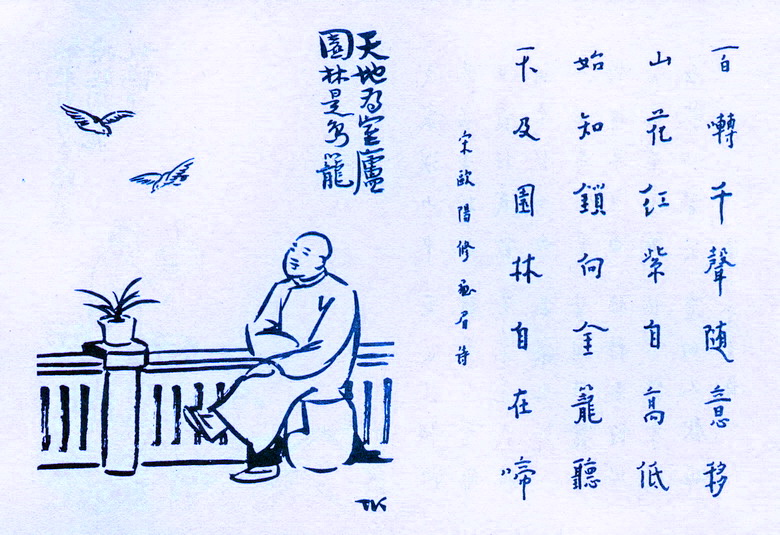 百囀千聲随意移
山花红紫自高低
始知鎖向金籠聽
不及園林自在啼
宋歐陽修畫眉詩
天地為室廬
園林是鳥籠
TK